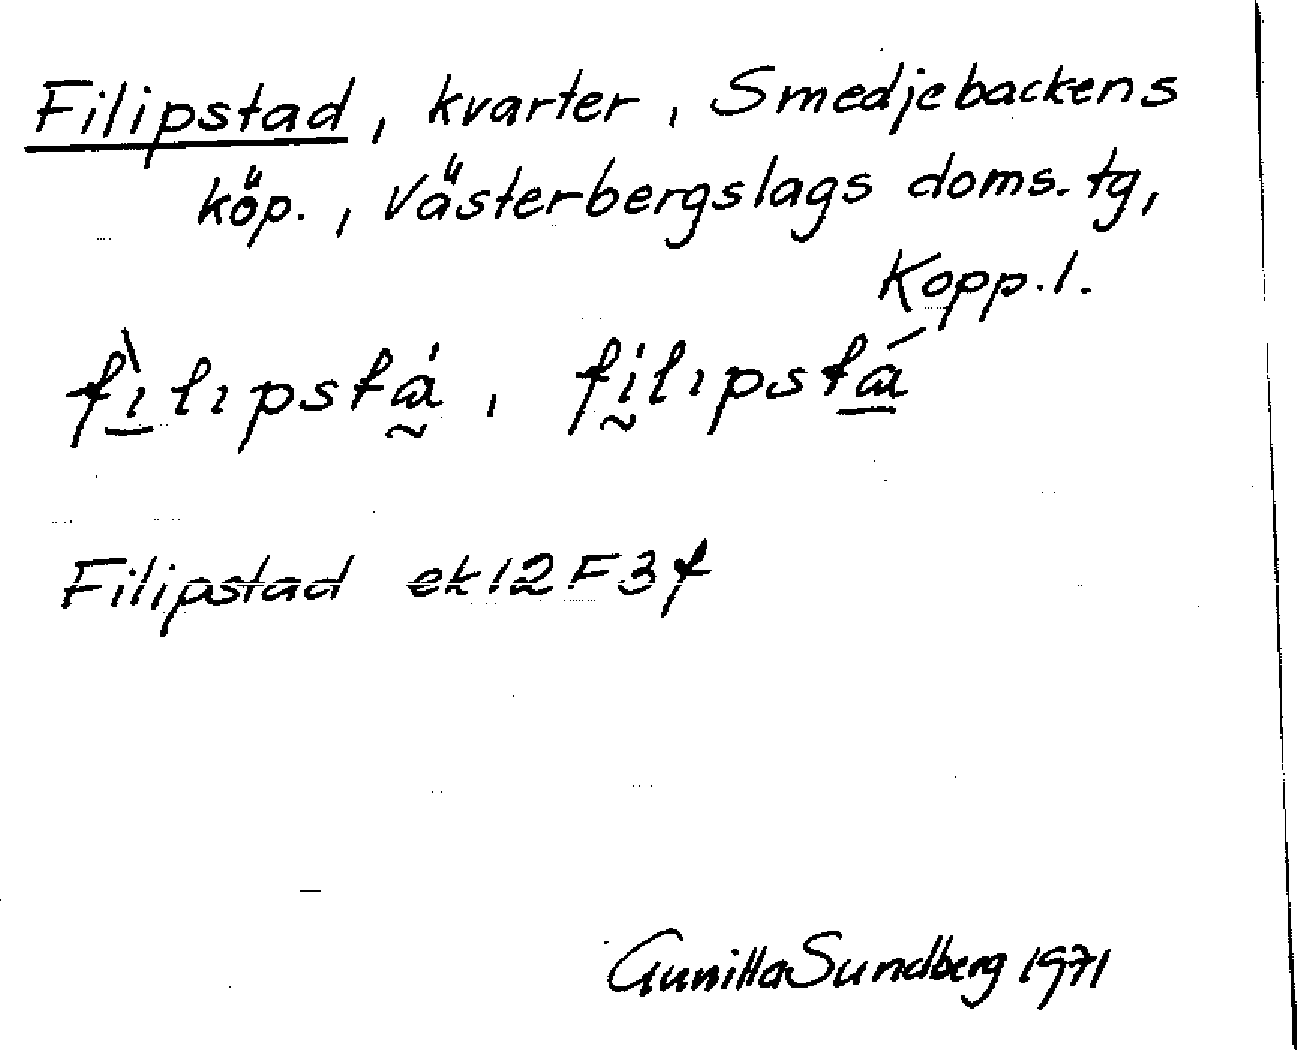 Filipstad, kvarter, Smedjebackens
köp., Västerbergslags doms. tg,
Kopp. l.
fìlıpstá, fílıpstá
Filipstad ek 12 F 3 f
Gunilla Sundberg 1971